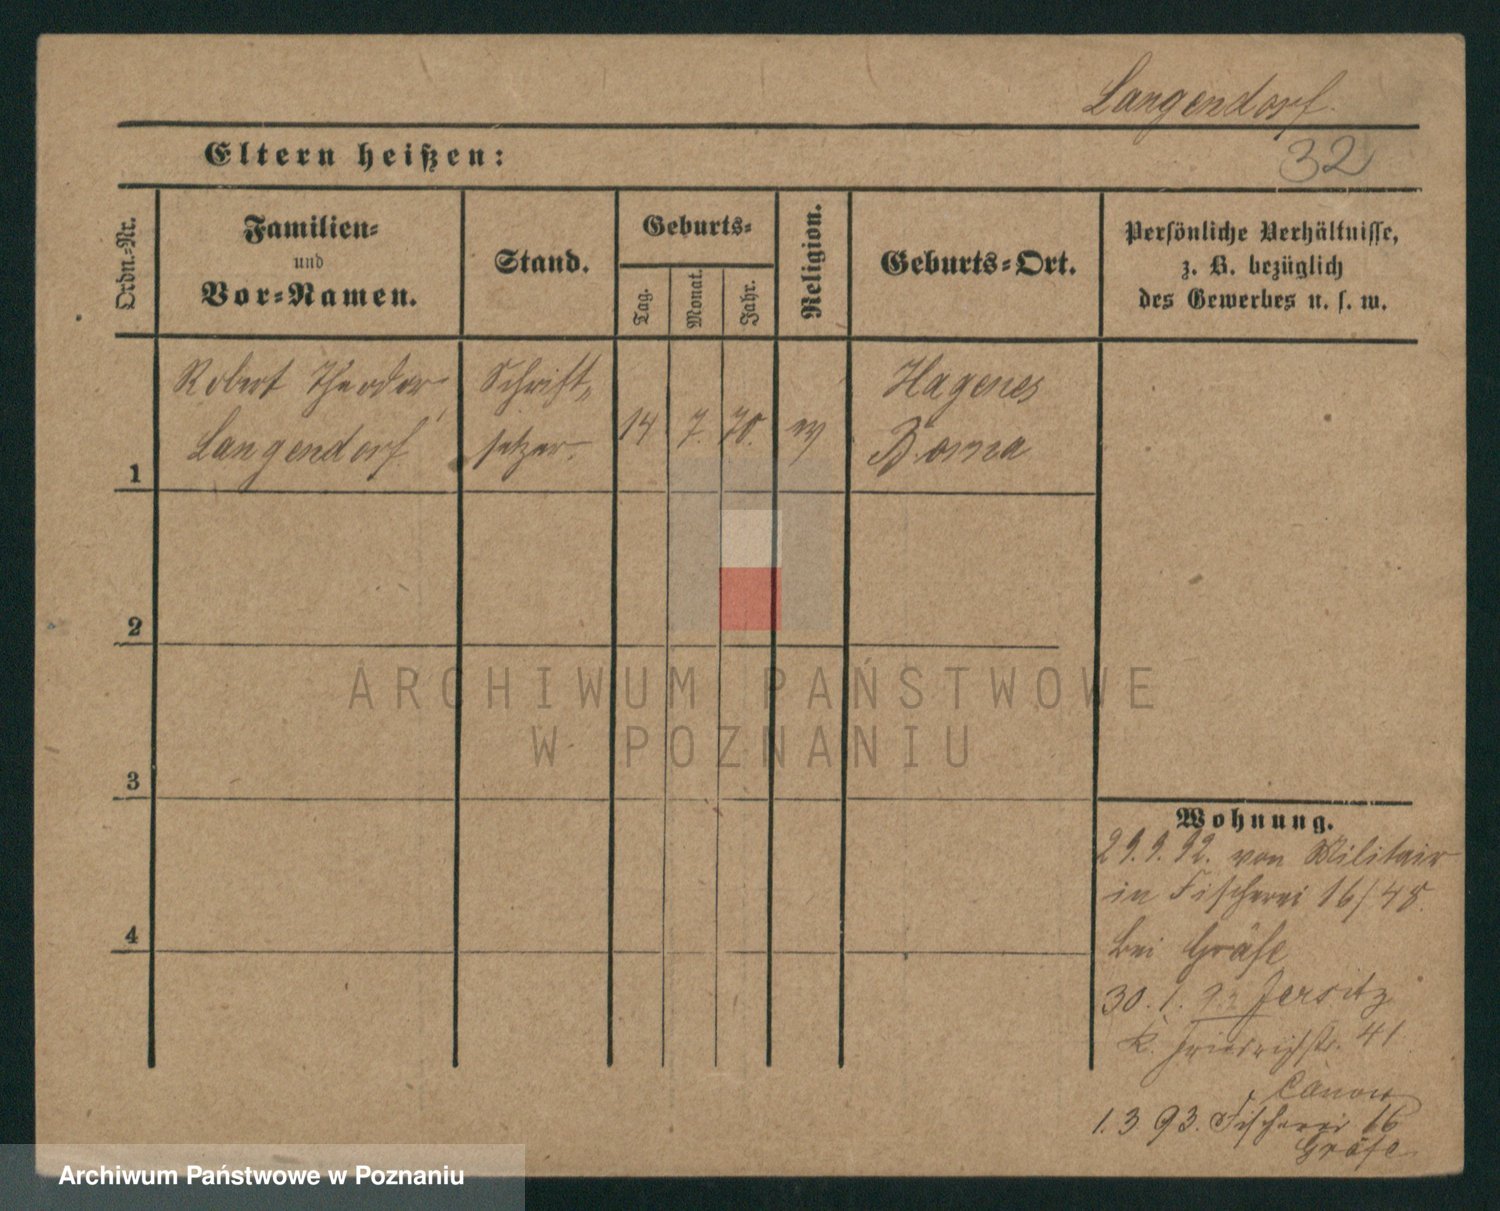 Langendorf.
32
Eltern heißen:
Ordn.-Nr.
Familien-
und
Vor-Namen.
Stand.
Geburts-
Tag.
Monat.
Jahr.
Religion.
Geburts-Ort.
Persönliche Verhältnisse,
z. B. bezüglich
des Gewerbes u. s. w.
1
Robert Theodor
Langendorf
Schrift-
setzer.
14
7.
70.
ev
Hagenes
Borna
2
3
4
Wohnung.
29.9.92. von Militair
in Fischerei 16/48.
bei Gräfe
30. 1. 93 Jersitz
K. Friedrichstr. 41
Canon
1. 3 93. Fischerei 16
Gräfe
ARCHIWUM PAŃSTWOWE
W POZNANIU
Archiwum Państwowe w Poznaniu